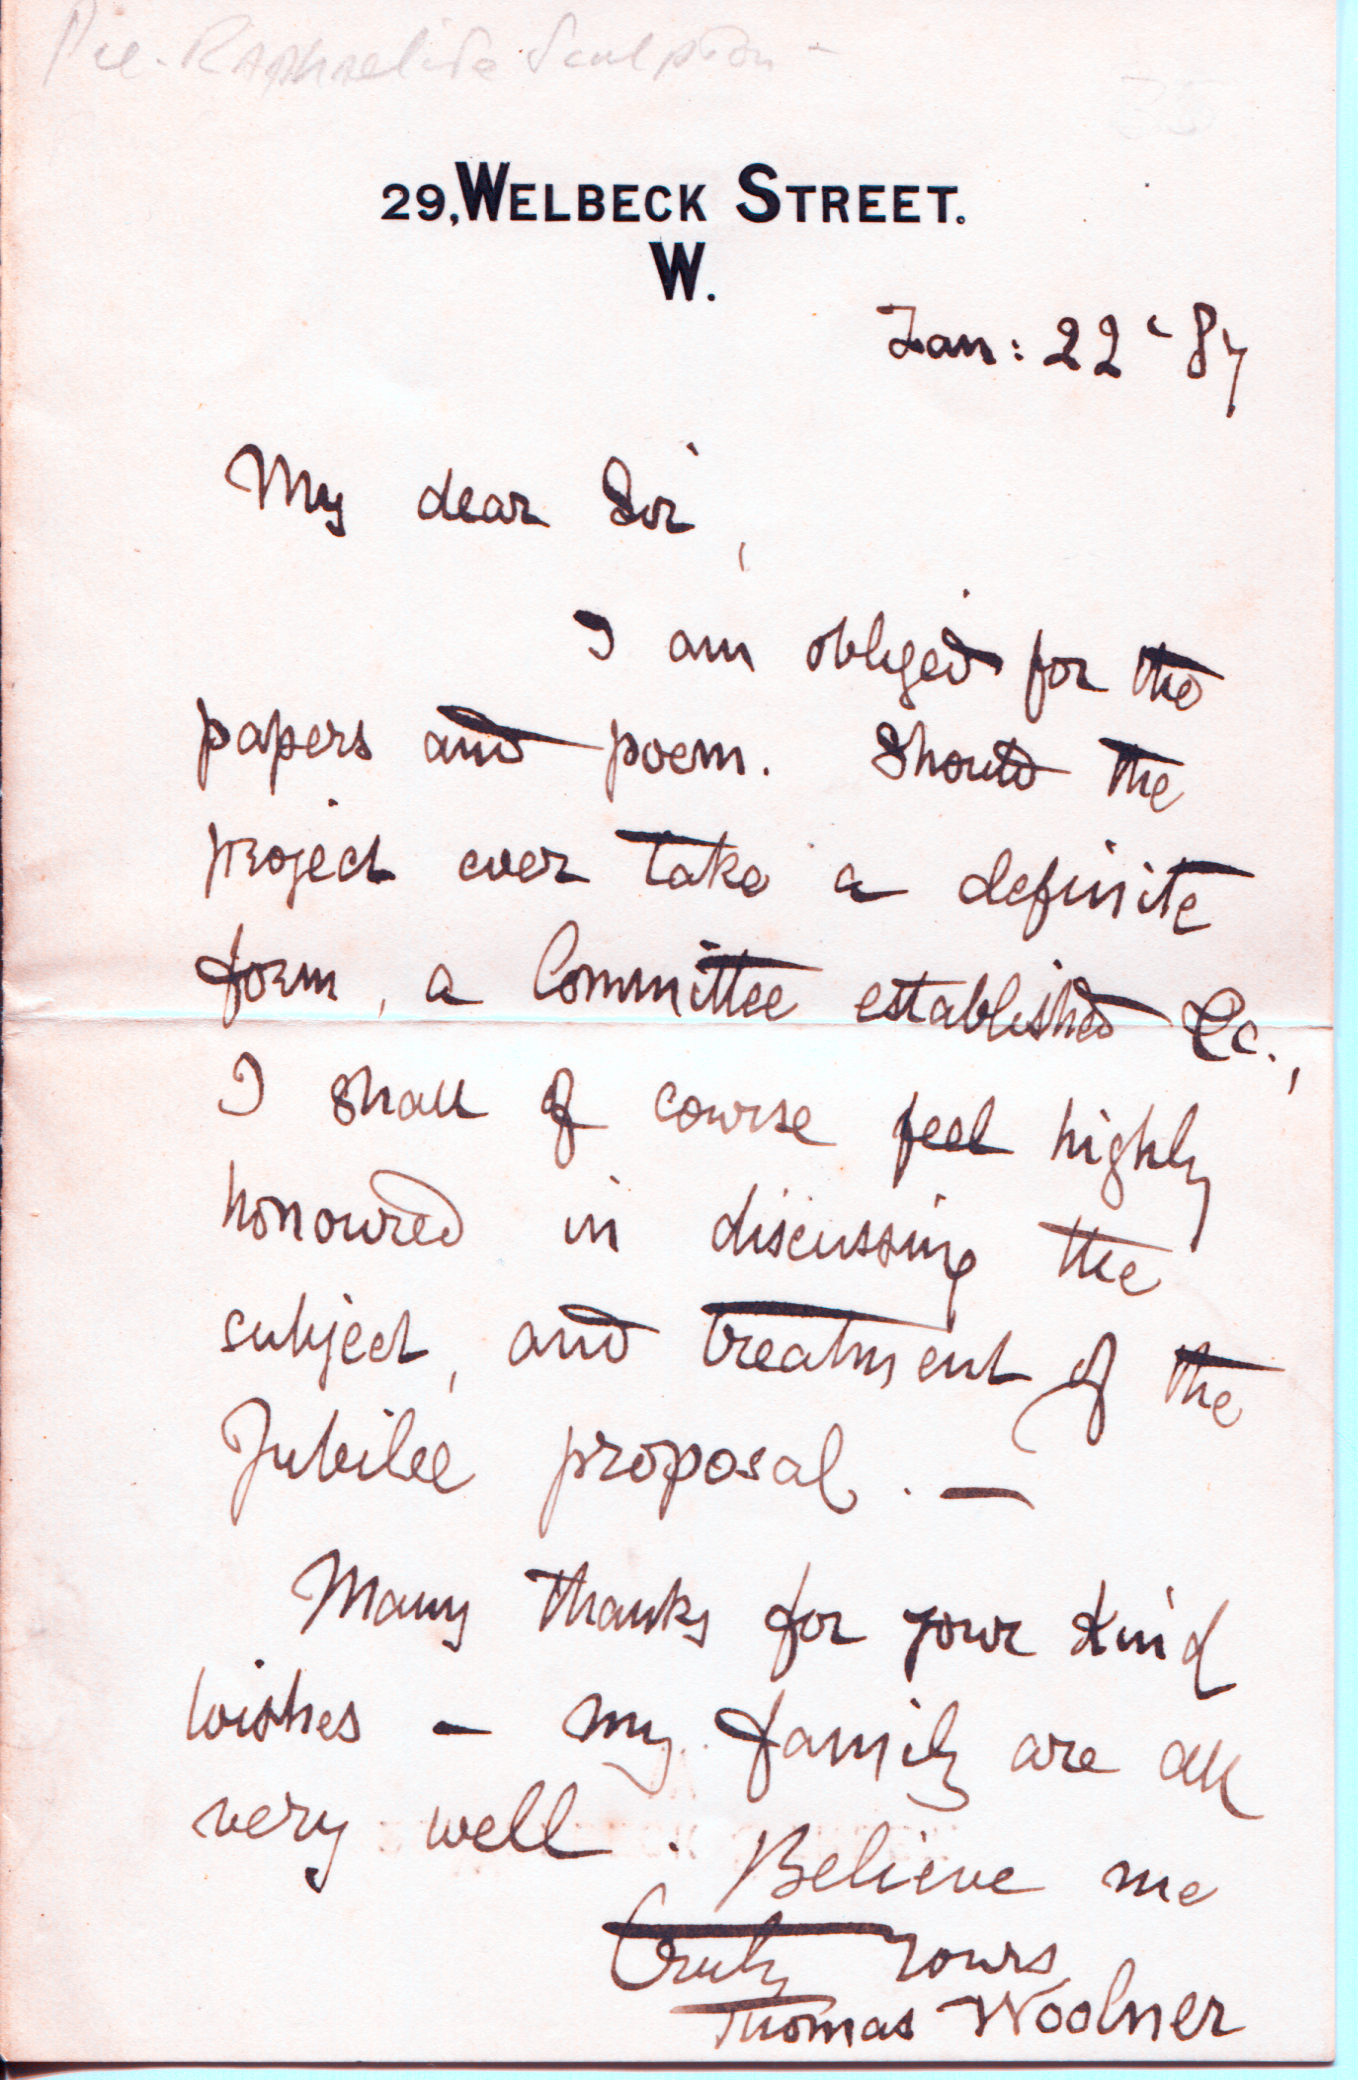 Pre-Raphaelite Sculptor -
35
29, WELBECK STREET.
W.
Jan: 22 - 87
My dear Sir,
I am obliged for the
papers and poem. Should the
project ever take a definite
form, a Committee established &c.,
I shall of course feel highly
honoured in discussing the
subject, and treatment of the
Jubilee proposal. —
Many thanks for your kind
wishes — my family are all
very well. Believe me
Truly Yours
Thomas Woolner